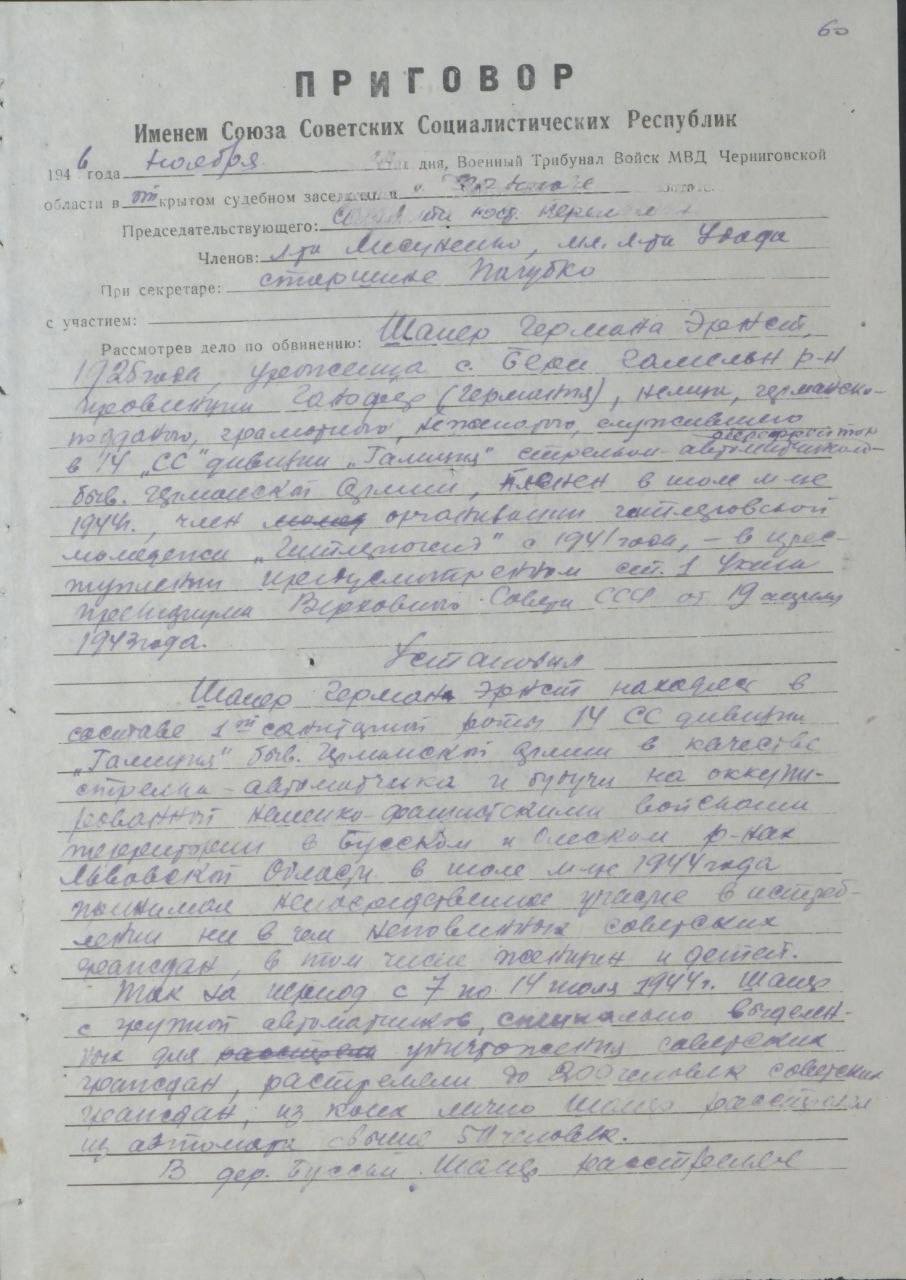 60
ПРИГОВОР
Именем Союза Советских Социалистических Республик
1946 года ноября дня, Военный Трибунал Войск МВД Черниговской
области в открытом судебном заседании в
Председательствующего:
Членов: л-та Лисуненко, мл. л-та
При секретаре: старшине
с участием:
Рассмотрев дело по обвинению: Шапер Германа Эрнст,
1926 года, уроженца с. р-н
провинции Ганофер (Германия), немца, германско-
подданого, грамотного, неженатого, служившего
в 14 "СС" дивизии "Галиция" стрелком-автоматчиком
быв. германской армии, пленен в июле м-це
1944г., член молод организации гитлеровской
молодежи "Гитлерюгенд" с 1941 года, - в прес-
туплении предусмотренном ст. 1 Указа
президиума Верховного Совета СССР от 19 апреля
1943 года.
Установил
Шапер Герман Эрнст находясь в
составе 1ой санитарной роты 14 СС дивизии
"Галиция" быв. германской армии в качестве
стрелка-автоматчика и будучи на оккупи-
рованной немецко-фашистскими войсками
территории в Бусском и Олеском р-нах
Львовской Области в июле м-це 1944 года
принимал непосредственное участие в истреб-
лении ни в чем неповинных советских
граждан, в том числе женщин и детей.
Так за период с 7 по 14 июля 1944г. Шапер
с группой автоматчиков, специально выделен-
ных для расстрела уничтожения советских
граждан, растреляли до 200 человек советских
граждан, из коих лично Шапер расстрелял
из автомата свыше 50 человек.
В дер. Шапер расстрелял